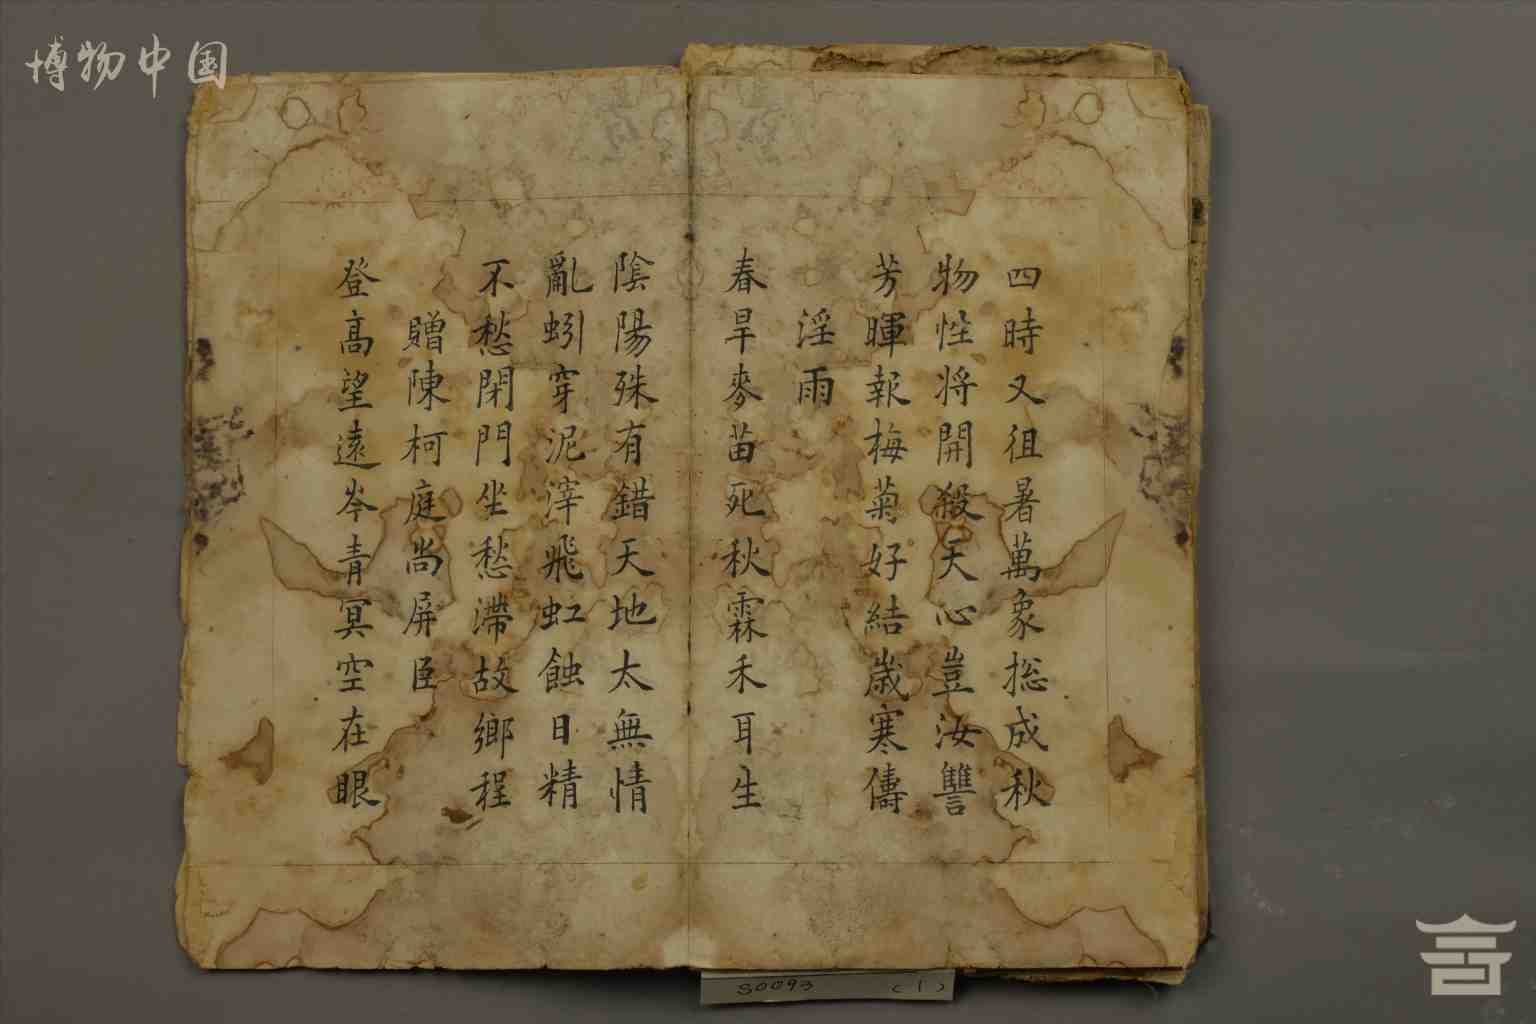 博物中国
四時又徂暑萬象捴成秋
物性将開殺天心豈汝讐
芳暉報梅菊好結歲寒儔
淫雨
春旱麥苗死秋霖禾耳生
陰陽殊有錯天地太無情
亂蚓穿泥滓飛虹蝕日精
不愁閉門坐愁滯故鄉程
贈陳柯庭尚屏臣
登高望遠岑青冥空在眼
S0093 (1)